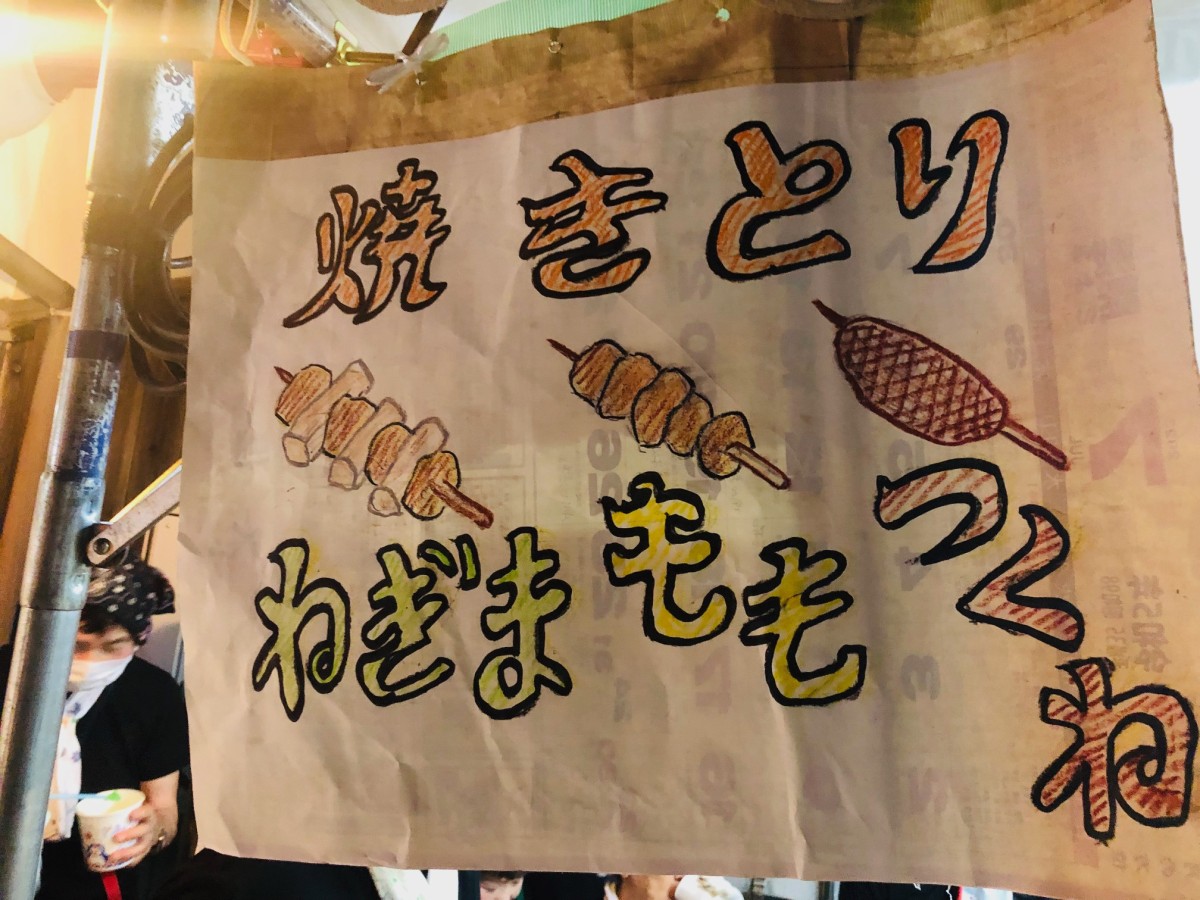 焼きとり
ねぎま
もも
つくね